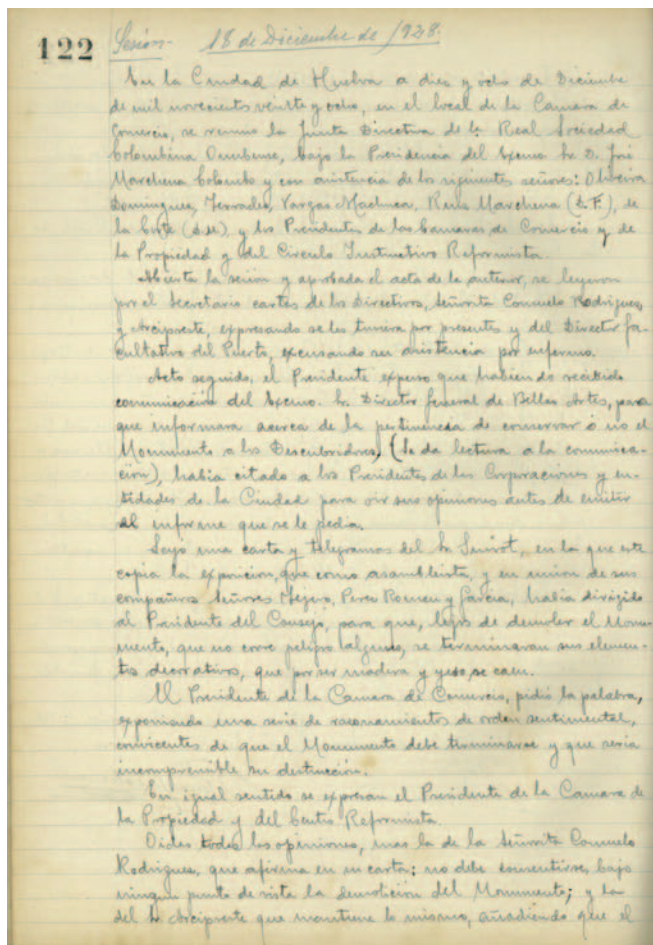 122
Sesión - 18 de Diciembre de 1928.
En la Ciudad de Huelva a diez y ocho de Diciembre
de mil novecientos veinte y ocho, en el local de la Camara de
Comercio, se reunió la Junta Directiva de la Real Sociedad
Colombina Onubense, bajo la Presidencia del Excmo Sr. D. José
Marchena Colombo y con asistencia de los siguientes señores: Oliveira
Dominguez, Terrades, Vargas Machuca, Ruiz Marchena (D. F.), de
la Corte (D. M.), y los Presidentes de las Camaras de Comercio y de
la Propiedad y del Circulo Instructivo Reformista.
Abierta la sesion y aprobada el acta de la anterior, se leyeron
por el Secretario cartas de los Directivos, Señorita Consuelo Rodriguez,
y Arcipreste, expresando se les tuviera por presentes y del Director fa-
cultativo del Puerto, excusando su asistencia por enfermo.
Acto seguido, el Presidente expuso que habiendo recibido
comunicación del Excmo. Sr. Director General de Bellas Artes, para
que informara acerca de la pertinencia de conservar ó no el
Monumento a los Descubridores, (se da lectura a la comunica-
ción), habia citado a los Presidentes de las Corporaciones y en-
tidades de la Ciudad para oir sus opiniones antes de emitir
el informe que se le pedia.
Leyó una carta y telegramas del Sr. en la que este
copia la exposicion, que como asambleista, y en union de sus
compañeros Señores Perez Romeu y Garcia, habia dirigido
al Presidente del Consejo, para que, lejos de demoler el Monu-
mento, que no corre peligro alguno, se terminaran sus elemen-
tos decorativos, que por ser madera y yeso, se caen.
El Presidente de la Camara de Comercio, pidió la palabra,
exponiendo una serie de razonamientos de orden sentimental,
convicentes de que el Monumento debe terminarse y que seria
incomprensible su destrucción.
En igual sentido se expresan el Presidente de la Camara de
la Propiedad y del Centro Reformista.
Oidas todas las opiniones, mas la de la Señorita Consuelo
Rodriguez, que afirma en su carta; no debe consentirse, bajo
ningun punto de vista la demolicion del Monumento; y la
del Sr. Arcipreste que mantiene lo mismo, añadiendo que el